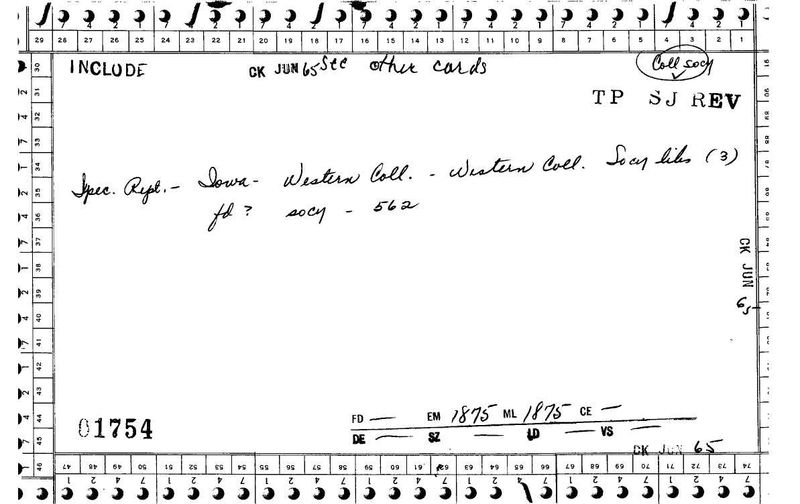 29 28 27 26 25 24 23 22 21 20 19 18 17 16 15 14 13 12 11 10 9 8 7 6 5 4 3 2 1
INCLUDE CK JUN 65 See other cards Coll socy
TP SJ REV
Spec. Rept. - Iowa - Western Coll. - Western Coll. Socy libs (3)
fd ? socy - 562
CK JUN 65
01754
FD — EM 1875 ML 1875 CE —
DE — SZ — LD — VS —
CK JUN 65
47 48 49 50 51 52 53 54 55 56 57 58 59 60 61 62 63 64 65 66 67 68 69 70 71 72 73 74